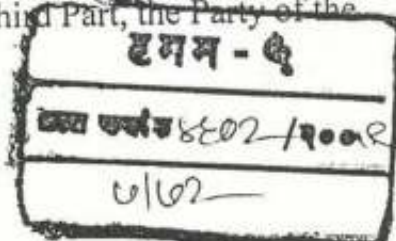 hird Part, the Party of the
टनन - ५
दस्त क्रमांक ४६०२/२००९
७/७२